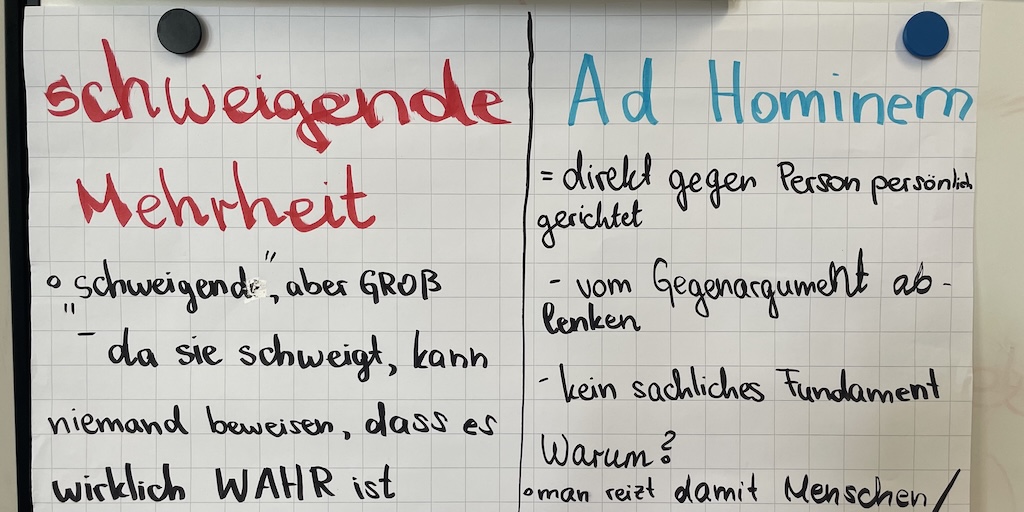 schweigende
Mehrheit
° "schweigende", aber GROß
- da sie schweigt, kann
niemand beweisen, dass es
wirklich WAHR ist
Ad Hominem
= direkt gegen Person persönlich
gerichtet
- vom Gegenargument ab-
lenken
- kein sachliches Fundament
Warum?
° man reizt damit Menschen/